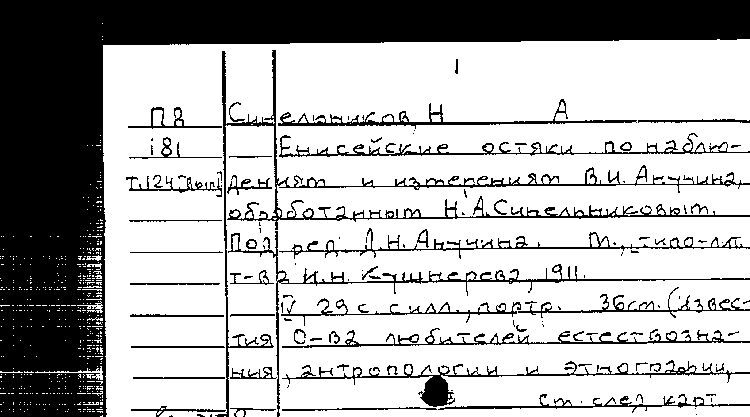 1
П8 Синельников, Н А
i81 Енисейские остяки по наблю-
т.124 дениям и измерениям В.И. Анучина,
обработанным Н.А. Синельниковым.
Под ред. Д.Н. Анучина. М., типо-лит.
т-ва И.Н. Кушнерева, 1911.
IV, 29 с. с илл., портр. 36см. (Извес-
тия О-ва любителей естествозна-
ния, антропологии и этнографии,
см. след. карт.